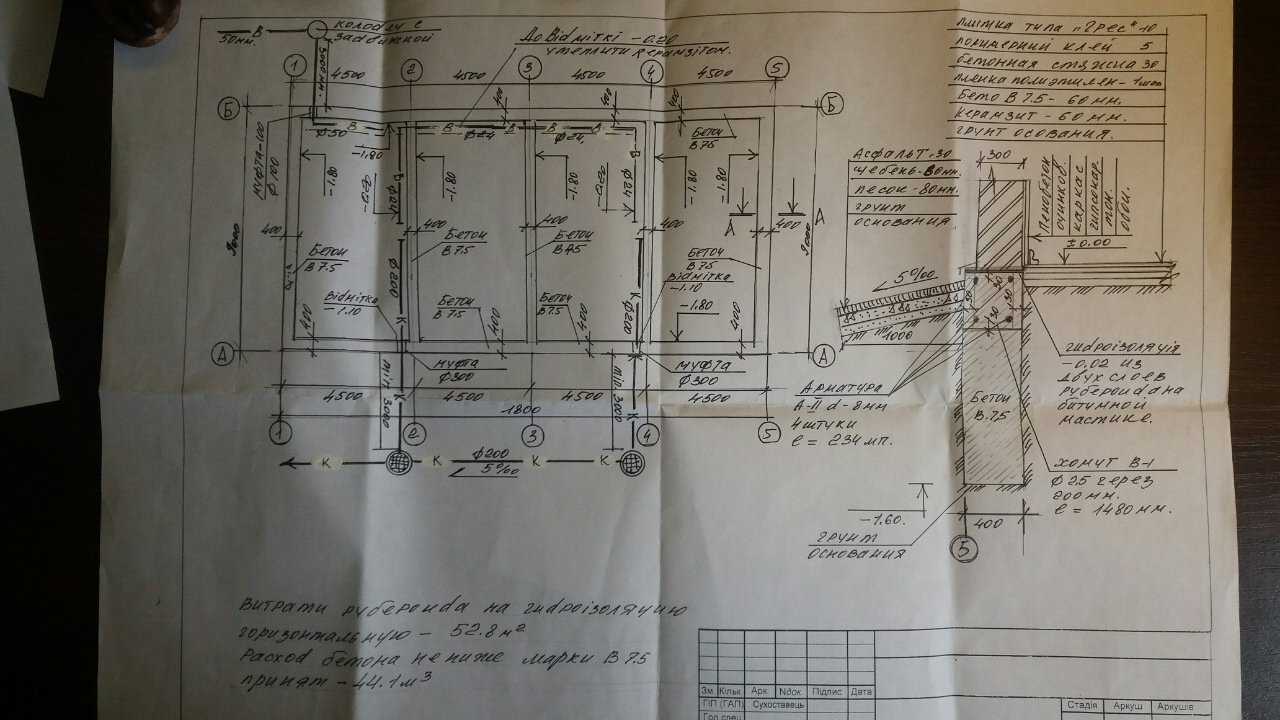 В
50мм.
КОЛОДЕЦ С
ЗАДВИЖКОЙ
3000мм.
ДО ВІДМІТКІ -0.20
УТЕПЛИТИ КЕРАМЗІТОМ.
1
2
3
4
5
4500
4500
4500
4500
400
Б
Б
МУФТА-100
Ф100
Ф50
В
В
Ф24
В
В
Ф24
В
-1.80
-1.80
-1.80
-1.80
-1.80
-1.80
БЕТОН
В 7.5
Ф24
Ф24
А
А
400
400
400
400
400
400
9000
9000
БЕТОН
В 7.5
БЕТОН
В 7.5
БЕТОН
БЕТОН
В 7.5
ВІДМІТКА
-1.10
ВІДМІТКА
-1.10
Ф200
К
К
Ф200
БЕТОН
В 7.5
БЕТОН
В 7.5
-1.80
400
400
400
400
А
А
МУФТА
Ф300
МУФТА
Ф300
min 3000
min 3000
К
К
К
4500
4500
4500
4500
1800
1
2
3
4
5
К
К
К
К
Ф200
5‰
ПЛИТКА ТИПА "ГРЕС" 10
ПОЛИМЕРНИЙ КЛЕЙ 5
БЕТОННАЯ СТЯЖКА 30
БЕТО В 7.5- 60 мм.
КЕРАМЗИТ - 60 мм.
ГРУНТ ОСОВАНИЯ.
АСФАЛЬТ-30
ПЕСОК - 80мм.
ГРУНТ
ОСНОВАНИЯ
300
ПЕНОБЕТОН
КАРКАС
ГИПСОКАР.
ОБОИ.
±0.00
5‰
1000
АРМАТУРА
А-II d-8мм
4 ШТУКИ
ℓ = 234 мп.
БЕТОН
В.7.5
ГИДРОІЗОЛЯЦІЯ
-0,02 ИЗ
ДВУХ СЛОЕВ
РУБЕРОИДА НА
БИТУМНОЙ
МАСТИКЕ.
ХОМУТ В-I
200 мм.
ℓ = 1480 мм.
-1.60.
ГРУНТ
ОСНОВАНИЯ
400
5
ВИТРАТИ РУБЕРОИДА НА ГИДРОІЗОЛЯЦИЮ
ГОРИЗОНТАЛЬНУЮ - 52.8 м²
РАСХОД БЕТОНА НЕ НИЖЕ МАРКИ В 7.5
ПРИНЯТ - 44.1 м³
Зм. Кільк. Арк. Nдок. Підпис Дата
ГІП (ГАП) Сухоставець
Гол.спец
Стадія Аркуш Аркушів